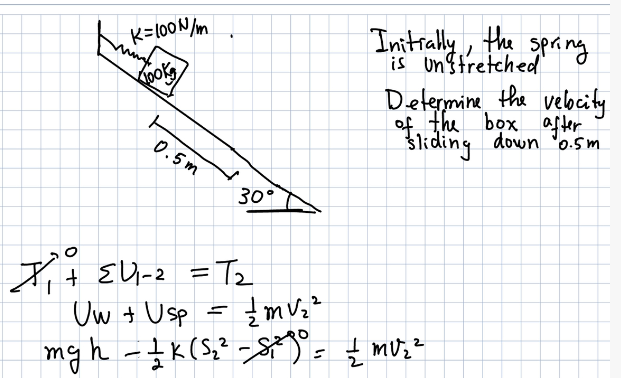 K=100N/m .
100kg
0.5m
30°
Initially, the spring
is unstretched
Determine the velocity
of the box after
sliding down 0.5m
T₁⁰ + ΣU₁₋₂ = T₂
Uw + Usp = ½ m V₂²
mgh - ½ K (S₂² - S₁²⁰) = ½ m V₂²